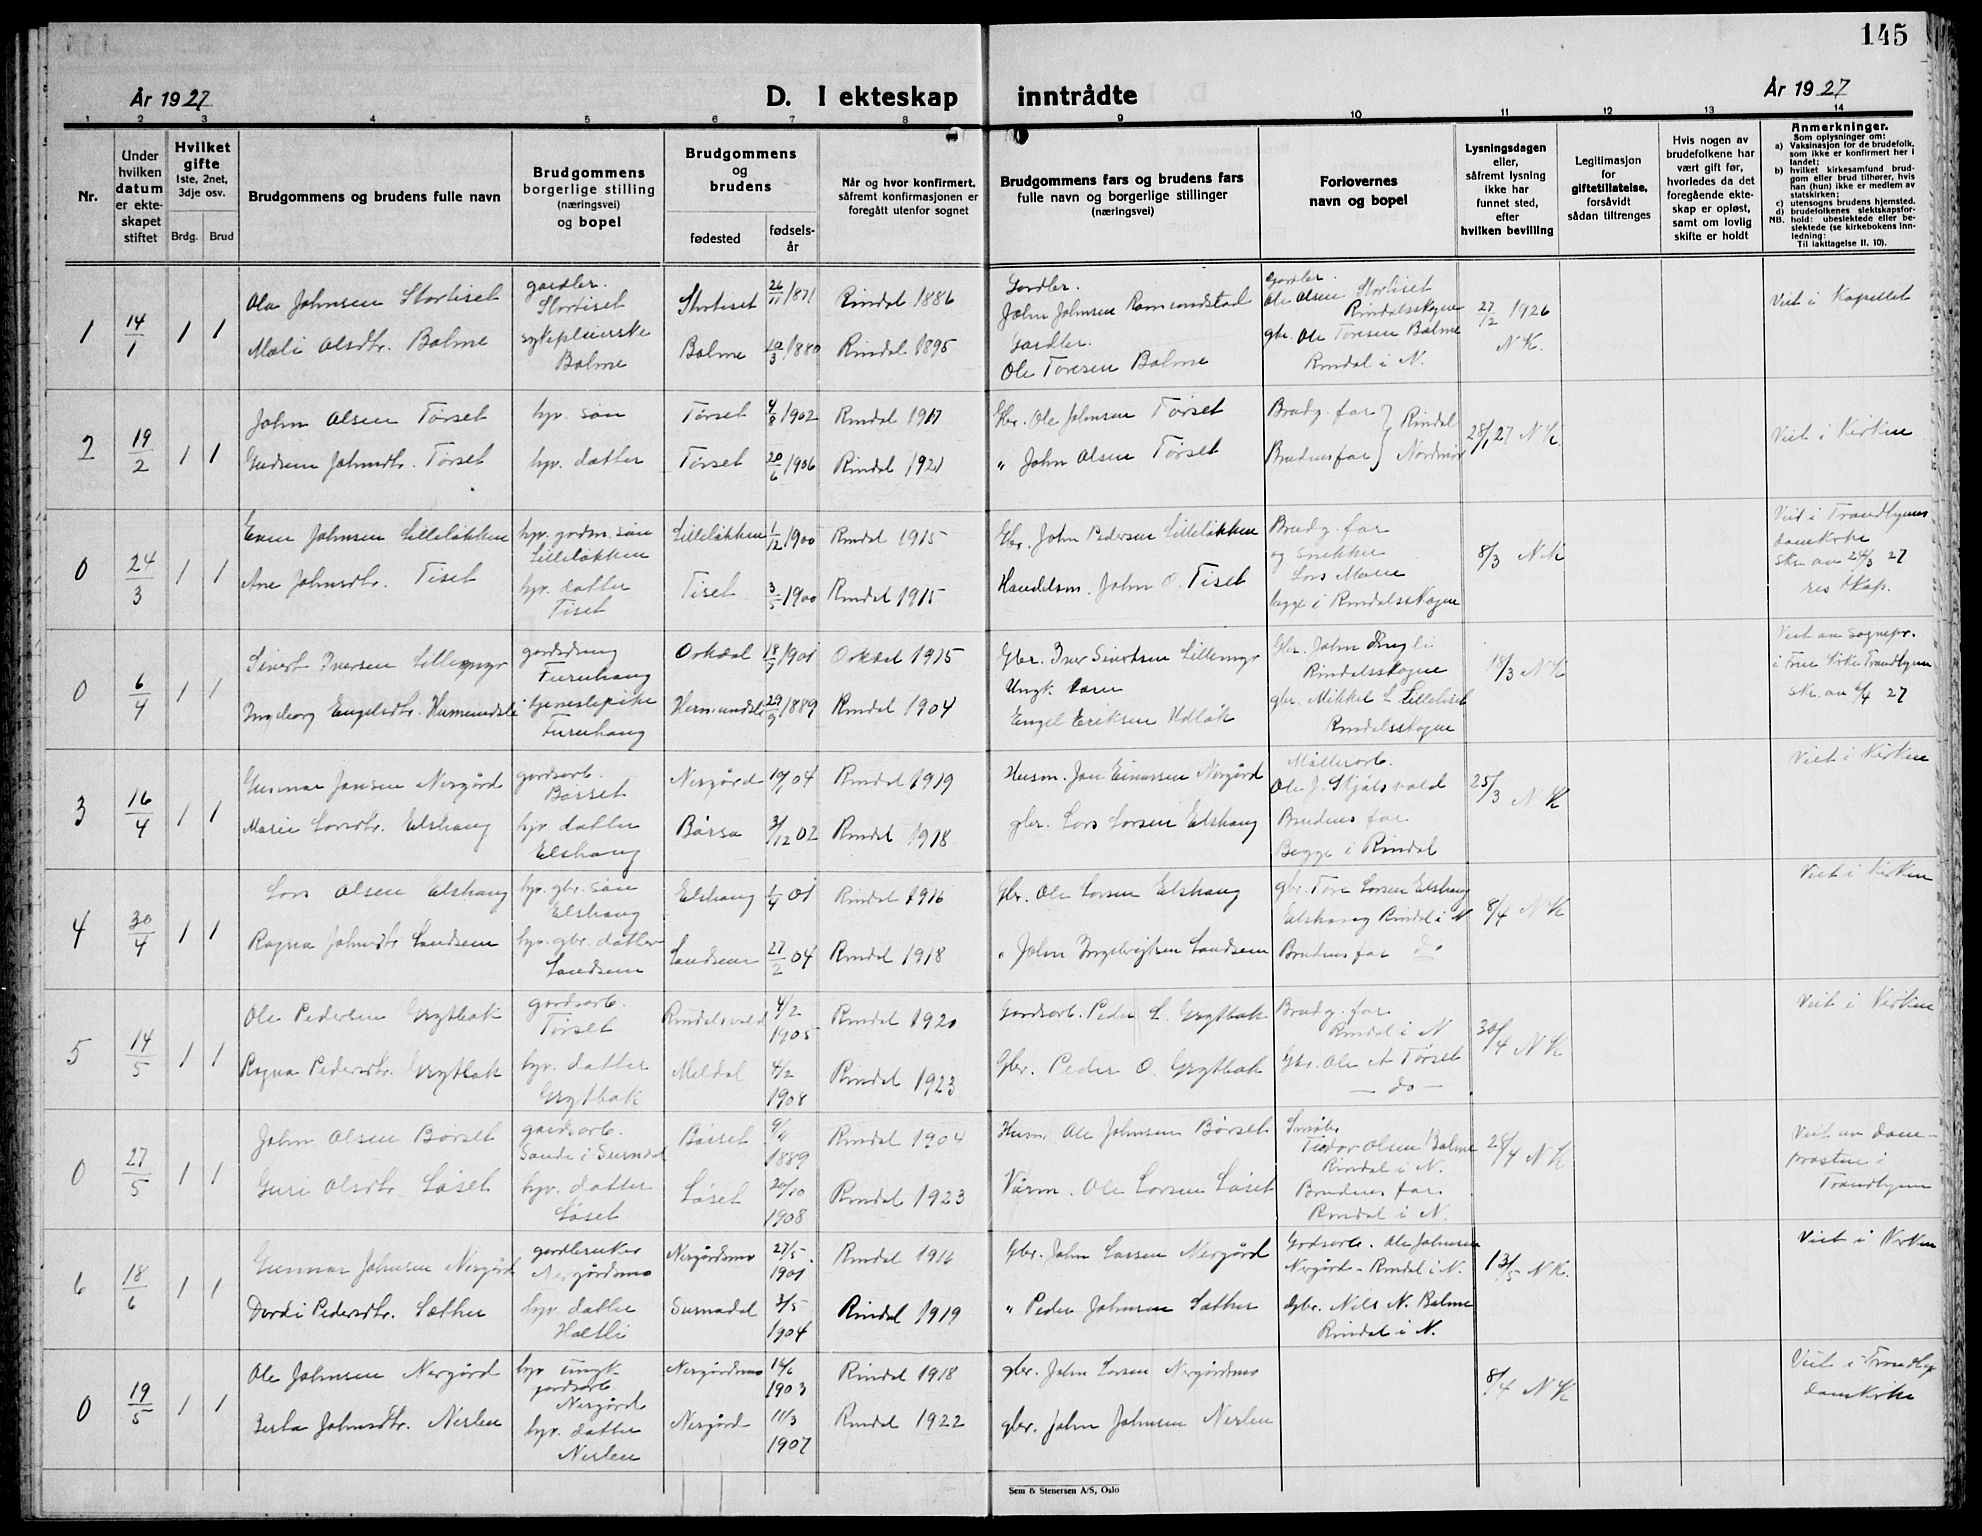 145
År 1927
D. I ekteskap inntrådte
År 1927
1 2 3 4 5 6 7 8 9 10 11 12 13 14
Nr.
Under hvilken datum er ekteskapet stiftet
Hvilket gifte
1ste, 2net, 3dje osv.
Brdg. Brud
Brudgommens og brudens fulle navn
Brudgommens borgerlige stilling (næringsvei) og bopel
Brudgommens og brudens
fødested
fødselsår
Når og hvor konfirmert, såfremt konfirmasjonen er foregått utenfor sognet
Brudgommens fars og brudens fars fulle navn og borgerlige stillinger (næringsvei)
Forlovernes navn og bopel
Lysningsdagen eller, såfremt lysning ikke har funnet sted, efter hvilken bevilling
Legitimasjon for giftetillatelse, forsåvidt sådan tiltrenges
Hvis nogen av brudefolkene har vært gift før, hvorledes da det foregående ekteskap er opløst, samt om lovlig skifte er holdt
Anmerkninger.
Som oplysninger om:
a) Vaksinasjon for de brudefolk, som ikke er konfirmert her i landet;
b) hvilket kirkesamfund brudgom eller brud tilhører, hvis han (hun) ikke er medlem av statskirken;
c) utensogns brudens hjemsted.
d) brudefolkenes slektskapsforhold: ubeslektede eller beslektede (se kirkebokens innledning:
NB. Til iakttagelse II. 10).
1 14/1 1 1
Ola Johnsen Stortiset gardbr. Stortiset Stortiset 26/11 1871 Rindal 1886 Gardbr. John Johnsen Romundstad Gardbr. Ole Olsen Stortiset Rindalsskogen 27/2 1926 N K. Viet i Kapellet
Mali Olsdtr. Bolme sykepleierske Bolme Bolme 10/3 1880 Rindal 1895 Gardbr. Ole Toresen Bolme gbr. Ole Toresen Bolme Rindal i N.
2 19/2 1 1
John Olsen Tørset hjv. søn Tørset 4/8 1902 Rindal 1917 Gbr. Ole Johnsen Tørset Brudg. far } Rindal 28/1 27 N K Viet i Kirken
Gudrun Johnsdtr. Tørset hjv. datter Tørset 20/6 1906 Rindal 1921 " John Olsen Tørset Brudens far } Nordmør
0 24/3 1 1
Even Johnsen Lilleløkken hjv. gardm. søn Lilleløkken Lilleløkken 1/12 1900 Rindal 1915 Gbr. John Pedersen Lilleløkken Brudg. far og snekker 8/3 N K Viet i Trondhjems domkirke
Ane Johnsdtr. Tiset hjv. datter Tiset Tiset 3/5 1900 Rindal 1915 Handelsm. John O. Tiset Lars Moen begge i Rindalsskogen skr. av 24/3 27 res Kap.
0 6/4 1 1
Sivert Iversen Lillemyr gardsdreng Furuhaug Orkdal 18/7 1901 Orkdal 1915 Gbr. Iver Sivertsen Lillemyr Gbr. John Rindalsskogen 18/3 N K Viet av sognepr. i Frue Kirke Trondhjem
Ingeborg Engelsdtr. Humundsli tjenestepike Furuhaug 29/9 1889 Rindal 1904 Ungk. Engel Eriksen Udløk gbr. Mikkel L. Lilletiset Rindalsskogen skr. av 6/4 27
3 16/4 1 1
Gunnar Jonsen Nergård gardsarb. Børset Nergård 04 Rindal 1919 Husm. Jon Einarsen Nergård Møllerarb. Ole J. Skjølsvold 25/3 N K Viet i Kirken
Marie Larsdtr. Elshaug hjv. datter Elshaug Børsa 3/12 02 Rindal 1918 gbr. Lars Larsen Elshaug Brudens far Begge i Rindal
4 30/4 1 1
Lars Olsen Elshaug hjv. gbr. søn Elshaug Elshaug 1/4 01 Rindal 1916 Gbr. Ole Larsen Elshaug gbr. Tore Larsen Elshaug Elshaug Rindal i N 8/4 N K Viet i Kirken
Ragna Johnsdtr. Landsem hjv. gbr. datter Landsem Landsem 27/2 04 Rindal 1918 " John Ingebrigtsen Landsem Brudens far do
5 14/5 1 1
Ole Pedersen Grytbak gardsarb. Tørset Rindalsvold 4/2 1905 Rindal 1920 Gardsarb. Peder L. Grytbak Brudg. far Rindal i N 30/4 N K Viet i Kirken
Ragna Pedersdtr. Grytbak hjv. datter Grytbak Meldal 4/2 1908 Rindal 1923 Gbr. Peder O. Grytbak Gbr. Ole A Tørset — do —
0 27/5 1 1
John Olsen Børset gardsarb. Sande i Surndal Børset 1889 Rindal 1904 Husm. Ole Johnsen Børset Småbr. Tiodor Olsen Bolme Rindal i N. 28/4 N K Viet av domprosten i Trondhjem
Guri Olsdtr. Løset hjv. datter Løset Løset 20/10 1908 Rindal 1923 Vårm. Ole Larsen Løset Brudens far. Rindal i N.
6 18/6 1 1
Gunnar Johnsen Nergård gardbruker Nergårdsmo Nergårdsmo 27/5 1901 Rindal 1916 Gbr. John Larsen Nergård Gardsarb. Ole Johnsen Nergård - Rindal i N. 13/5 N K. Viet i Kirken
Dordi Pedersdtr. Sæther hjv. datter Holtli Surnadal 3/5 1904 Rindal 1919 " Peder Johnsen Sæther Gbr. Nils N. Bolme Rindal i N.
0 19/5 1 1
Ole Johnsen Nergård hjv ungk. gardsarb Nergård Nergårdsmo 14/6 1903 Rindal 1918 gbr. John Larsen Nergårdsmo 8/4 N K Viet i Trondhjs domkirke
Berta Johnsdtr. Nerløu hjv. datter Nerløu Nergård 11/3 1907 Rindal 1922 gbr. John Johnsen Nerløu
Sem & Stenersen A/S, Oslo